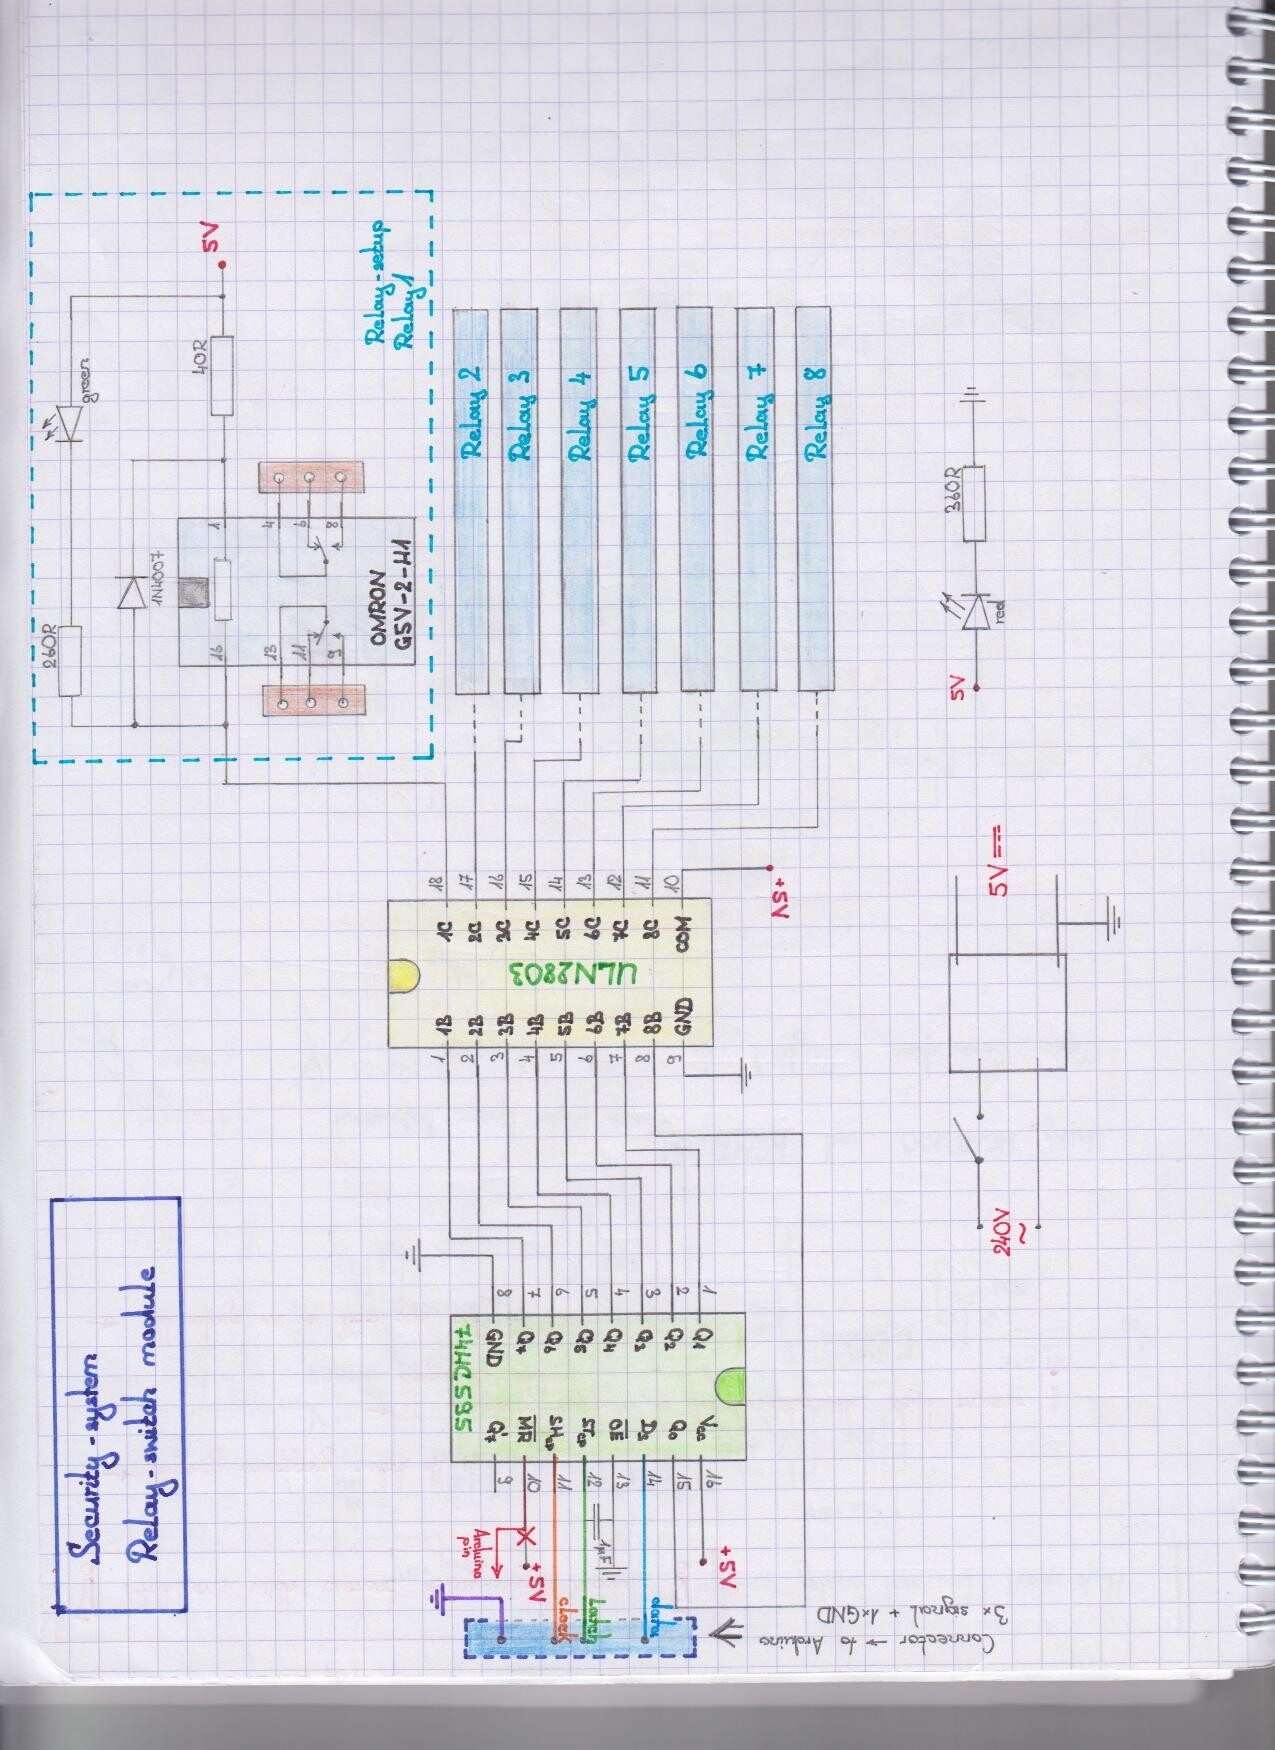 Security-system
Relay-switch module
5V
green
40R
1N4007
260R
1
16
4
6
8
13
11
9
OMRON
G5V-2-H1
Relay-setup
Relay 1
Relay 2
Relay 3
Relay 4
Relay 5
Relay 6
Relay 7
Relay 8
18
17
16
15
14
13
12
11
10
1C
2C
3C
4C
5C
6C
7C
8C
COM
+5V
ULN2803
1B
2B
3B
4B
5B
6B
7B
8B
GND
1
2
3
4
5
6
7
8
9
8
7
6
5
4
3
2
1
GND
Q7
Q6
Q5
Q4
Q3
Q2
Q1
74HC595
Q7'
MR
SHcp
STcp
OE
Ds
Q0
Vcc
9
10
11
12
13
14
15
16
Arduino
pin
+5V
1µF
+5V
clock
Latch
data
Connector → to Arduino
3x signal + 1xGND
5V
red
360R
5V
240V
~